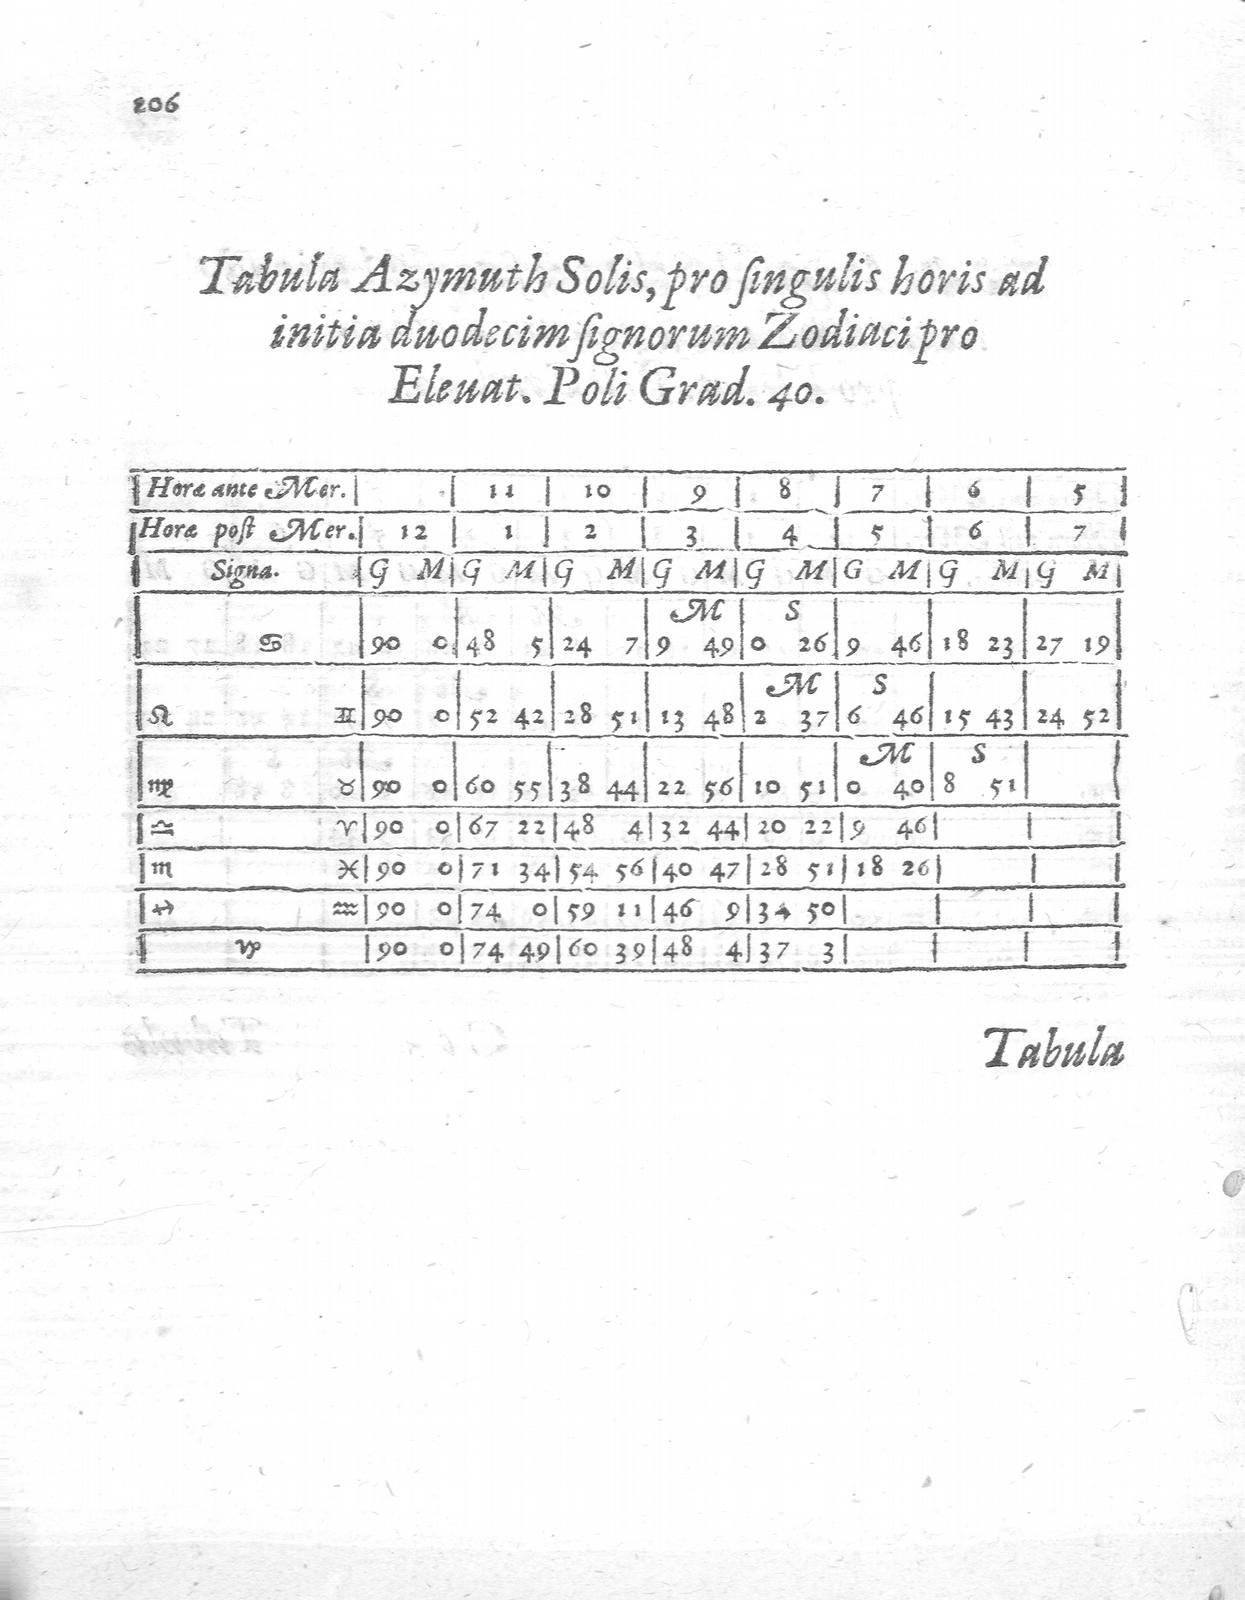 206
Tabula Azymuth Solis, pro ſingulis horis ad
initia duodecim ſignorum Zodiaci pro
Eleuat. Poli Grad. 40.
Horæ ante Mer. 11 10 9 8 7 6 5
Horæ poſt Mer. 12 1 2 3 4 5 6 7
Signa. G M G M G M G M G M G M G M G M
M S
♋ 90 0 48 5 24 7 9 49 0 26 9 46 18 23 27 19
M S
♌ ♊ 90 0 52 42 28 51 13 48 2 37 6 46 15 43 24 52
M S
♍ ♉ 90 0 60 55 38 44 22 56 10 51 0 40 8 51
♎ ♈ 90 0 67 22 48 4 32 44 20 22 9 46
♏ ♓ 90 0 71 34 54 56 40 47 28 51 18 26
♐ ♒ 90 0 74 0 59 11 46 9 34 50
♑ 90 0 74 49 60 39 48 4 37 3
Tabula